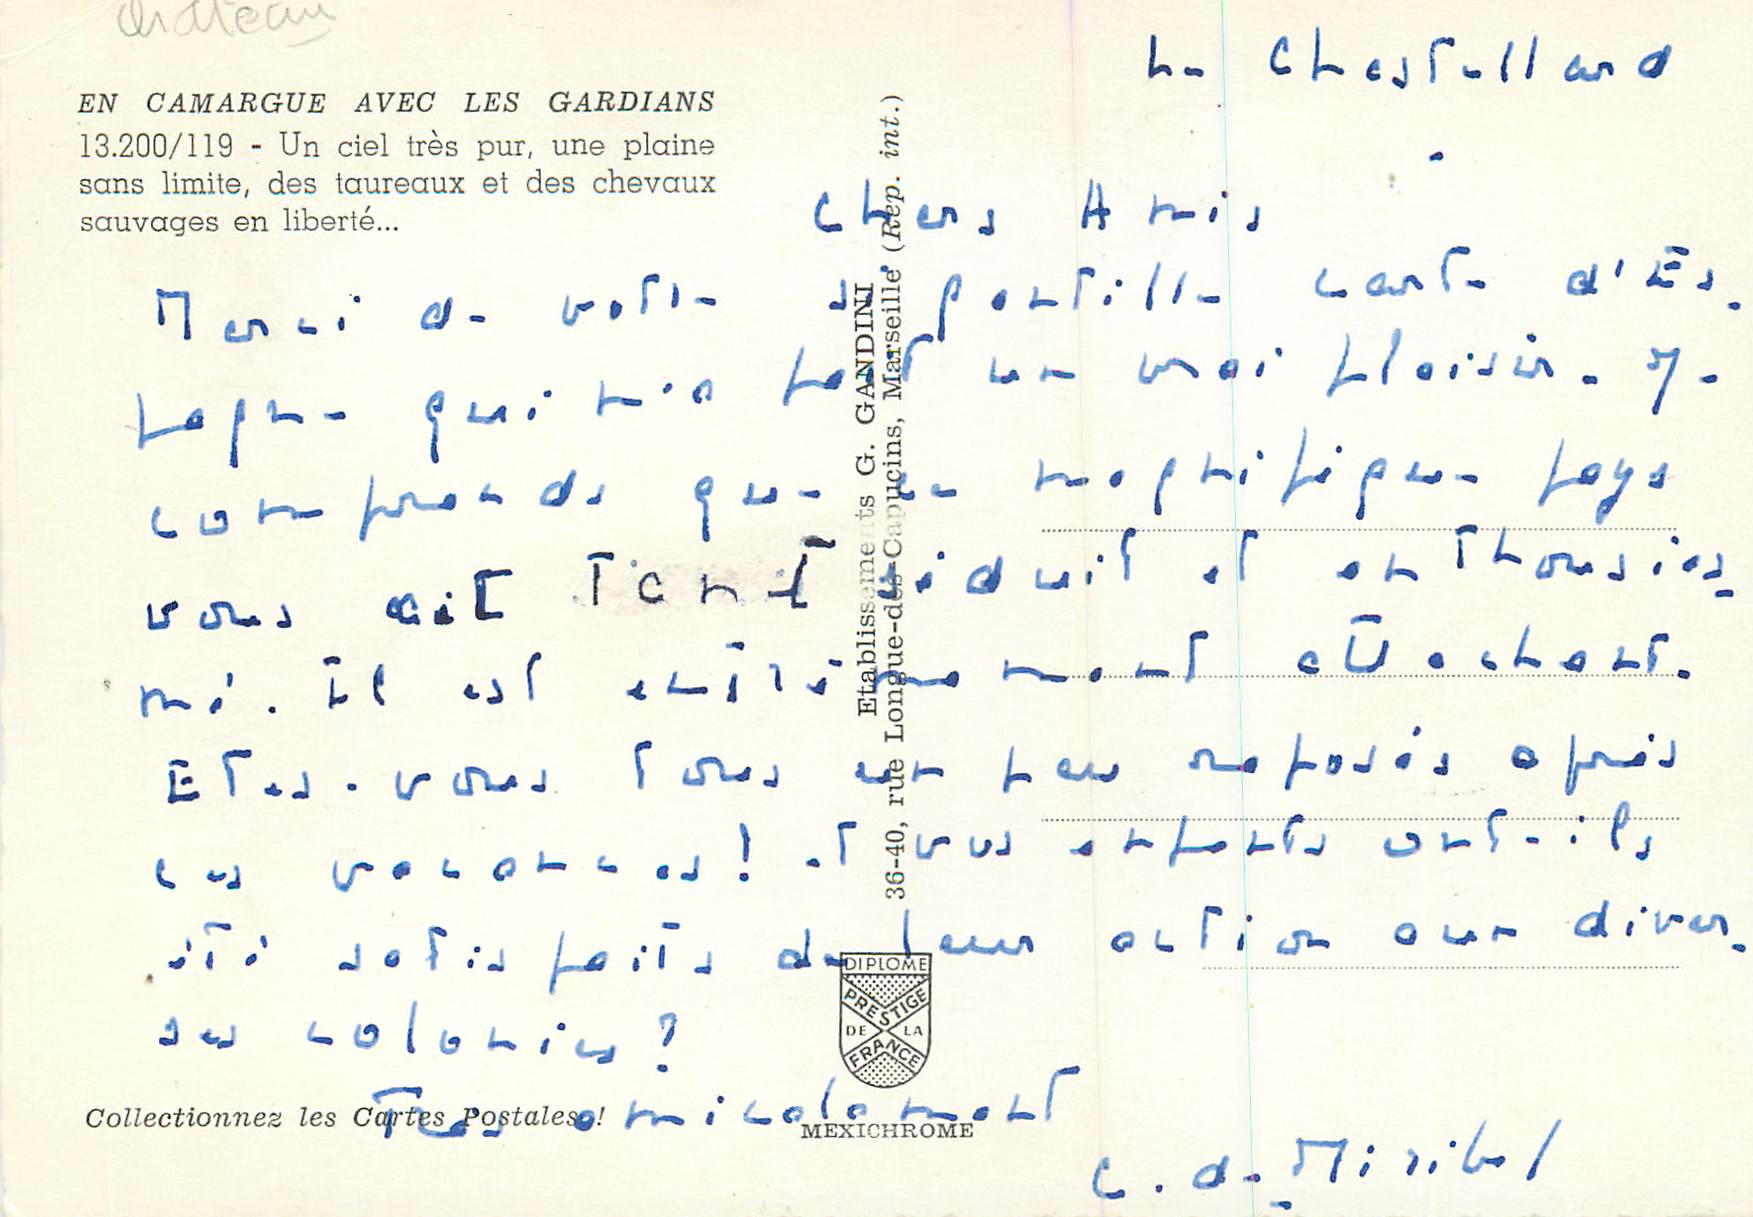 Château
EN CAMARGUE AVEC LES GARDIANS
13.200/119 - Un ciel très pur, une plaine
sans limite, des taureaux et des chevaux
sauvages en liberté...
Le Chastellard
Chers Amis
Merci de votre si gentille carte d'Es-
pagne qui m'a fait un vrai plaisir. Je
comprends que ce magnifique pays
vous ait tant séduit et enthousias-
mé. Il est extrêmement attachant.
Etes-vous tous un peu reposés après
ces vacances! et vos enfants ont-ils
été satisfaits de leur action aux diver-
ses colonies?
Très amicalement
C. de Miribel
Etablissements G. GANDINI
36-40, rue Longue-des-Capucins, Marseille (Rép. int.)
DIPLOME
PRESTIGE
DE LA
FRANCE
Collectionnez les Cartes Postales!
MEXICHROME